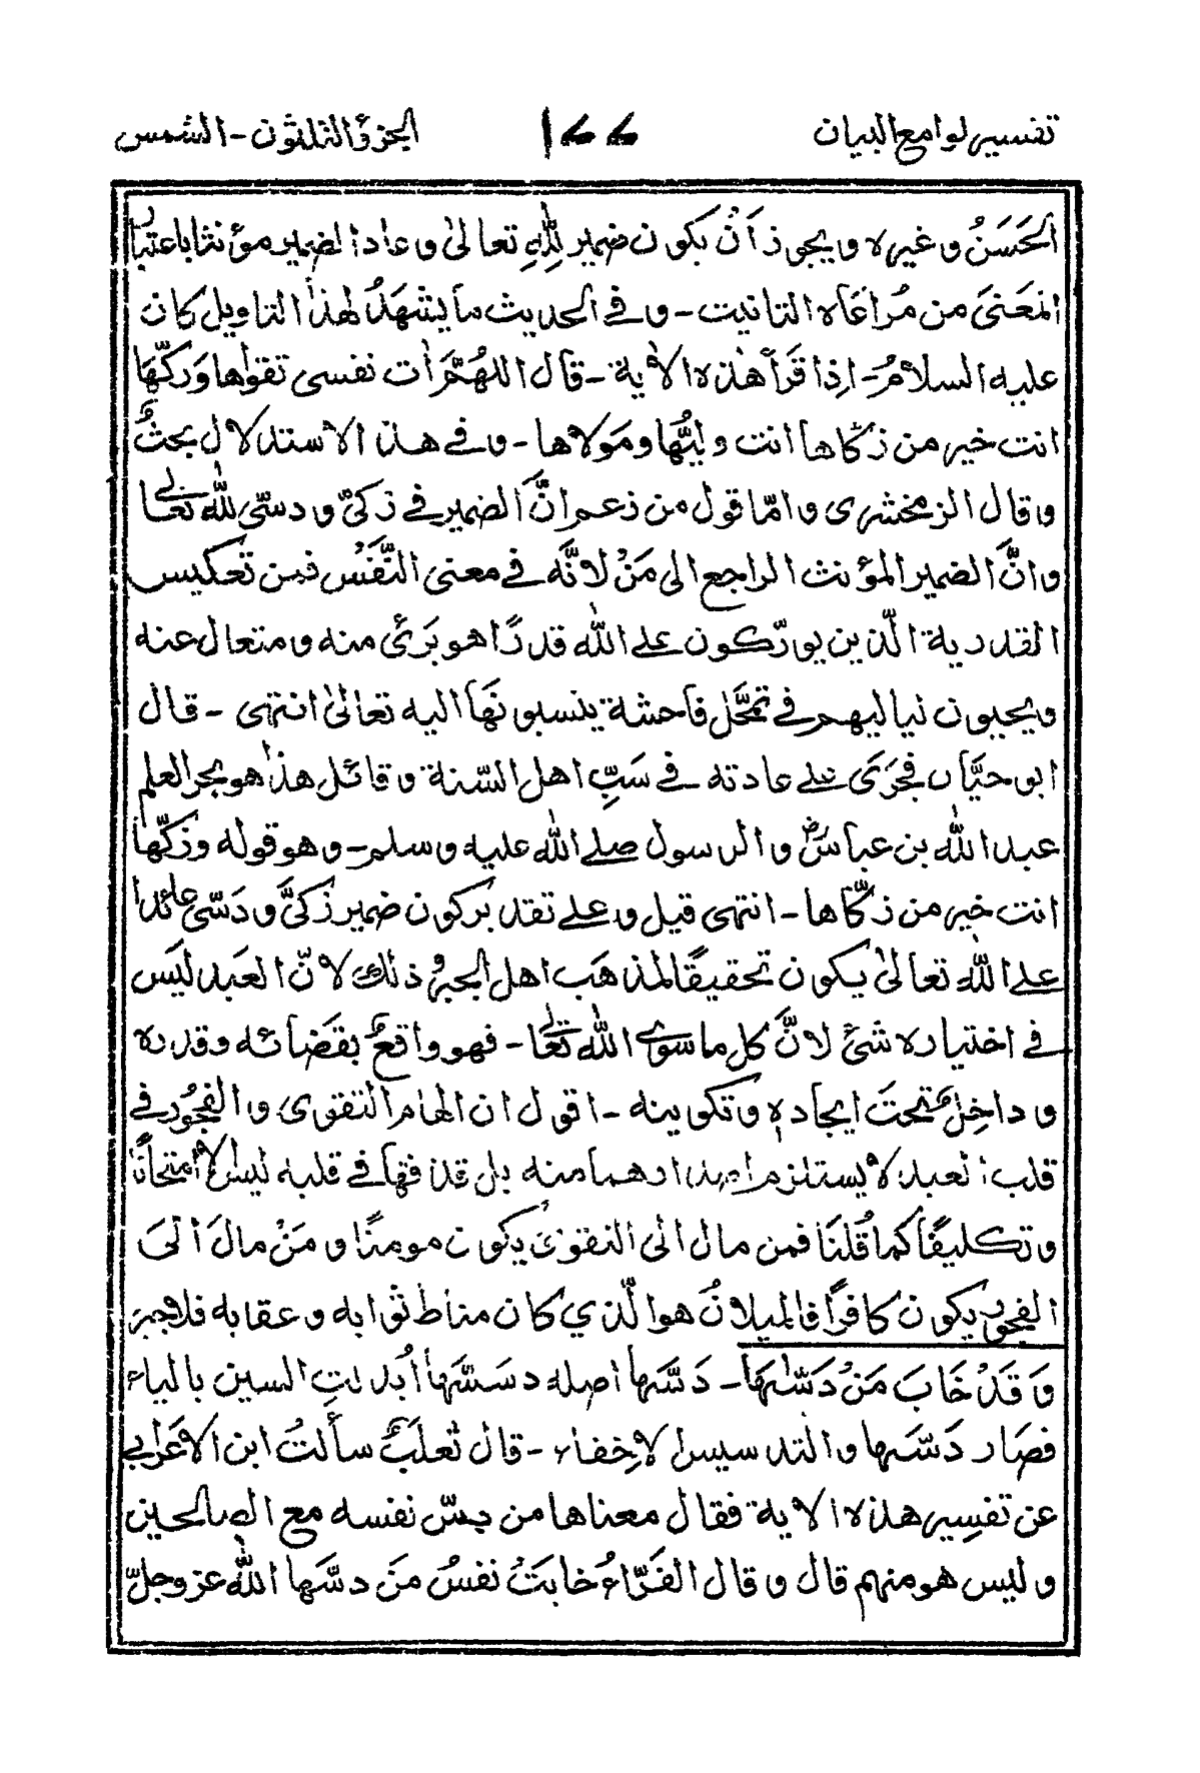 تفسير لوامع البيان ١٤٤ الجزؤ الثلثون - الشمس
الحَسَنُ وغيره ويجوز أَنْ يكون ضمير لِلّٰهِ تعالىٰ وعاد الضمير مؤنثا باعتبار
المَعْنىَ من مُرَاعَاه التانيت - وفي الحديث مَا يشهَدُ لهٰذا التاويل كان
عليه السلامُ - اِذا قَرَأ هٰذه الاٰية - قال اللهُمَّ اٰت نفسى تقواها وَزكّهَا
انت خير من زكّاها انت وليُّها ومَولاها - وفي هذ الاستدلال بحثٌ
وقال الزمخشرى وامّا قول من زعم انَّ الضمير في زكىّ ودسّى للّٰه تعالى
وانَّ الضمير المؤنث الراجع الى مَنْ لانَّه في معنى النَّفَسْ فمن تعكيس
القدرية الّذين يورّكون على اللّٰه قدرًا هو بَرَئٌ منه ومتعال عنه
ويحيون لياليهم في تمحَّل فاحشة ينسبونهَا اليه تعالىٰ انتهى - قال
ابوحيَّان فجَرَى على عادته في سَبِّ اهل السّنة وقائل هذا هو بحر العلم
عبد اللّٰه بن عباسؓ والرسول صلى اللّٰه عليه وسلم - وهو قوله وزكّها
انت خير من زكّاها - انتهى قيل وعلى تقدير كون ضمير زكىَّ ودَسّى عائدا
على اللّٰه تعالىٰ يكون تحقيقًا لمذهَب اهل الجبر وذلك لانّ العَبد ليَس
في اختياره شئ لانَّ كل ما سوى اللّٰه تعالى - فهو واقعٌ بقضَائه وقدره
وداخِلٌ تحتَ ايجاده وتكوينه - اقول ان الهام التقوى والفجُور في
قلب العبد لا يستلزم اصدارهما منه بل قذفها في قلبه ليس الا امتحانًا
وتكليفًا كما قُلنَا فمن مال الى التقوىٰ يكون مومنًا ومَنْ مالَ الىَ
الفجور يكون كافرًا فالميلانُ هو الّذي كان مناط ثوابه وعقابه فلا جبرَ
وَقَدْ خَابَ مَنْ دَسّٰهَا - دَسّٰهَا اصله دسَسَّهَا اُبدلتِ السين بالياء
فصَار دَسّٰها والتدسيس الاخِفاء - قال ثَعلَبٌ سألتُ ابن الاعَرابي
عن تفسِير هذه الاية فقال معناها من دسّ نفسه مع الصالحين
وليس هو منهم قال وقال الفَرّاءُ خابَتْ نفسُ مَنَ دسَّها اللّٰه عز وجلّ